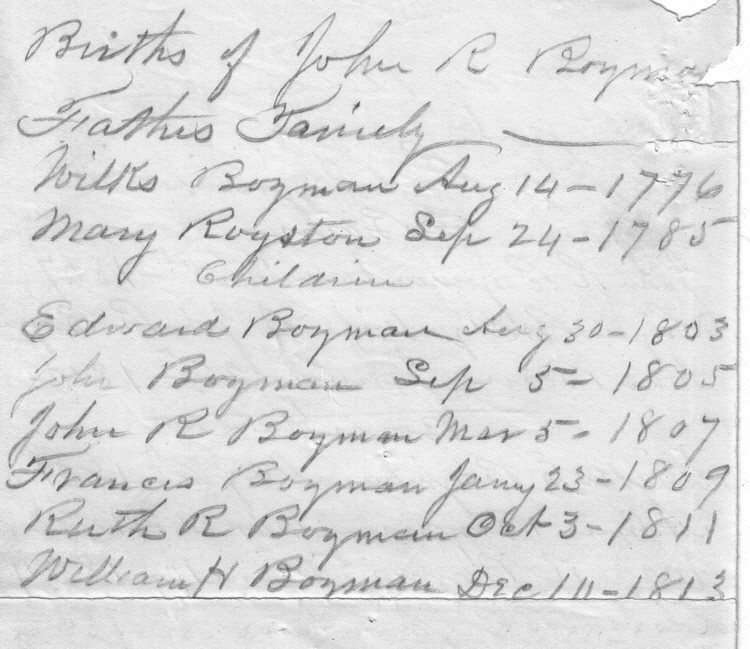 Births of John R Bozman
Fathers Family
Wilks Bozman Aug 14 - 1776
Mary Royston Sep 24 - 1785
Children
Edward Bozman Aug 30 - 1803
John Bozman Sep 5 - 1805
John R Bozman Mar 5 - 1807
Francis Bozman Jany 23 - 1809
Ruth R Bozman Oct 3 - 1811
William H Bozman Dec - 1813